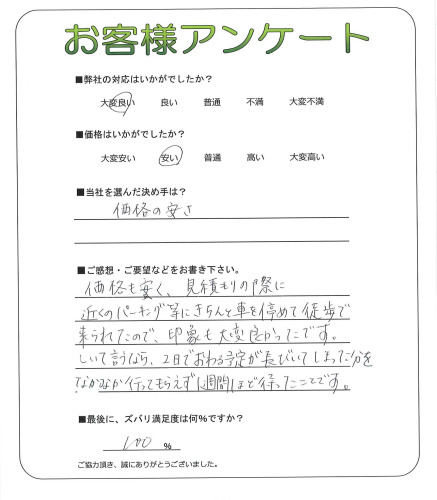 お客様アンケート
■弊社の対応はいかがでしたか？
大変良い 良い 普通 不満 大変不満
■価格はいかがでしたか？
大変安い 安い 普通 高い 大変高い
■当社を選んだ決め手は？
価格の安さ
■ご感想・ご要望などをお書き下さい。
価格も安く、見積もりの際に
近くのパーキング等にきちんと車を停めて徒歩で
来られてたので、印象も大変良かったです。
しいて言うなら、2日でおわる予定が長びいてしまった分を
なかなか行ってもらえず1週間ほど待ったことです。
■最後に、ズバリ満足度は何%ですか？
100 %
ご協力頂き、誠にありがとうございました。